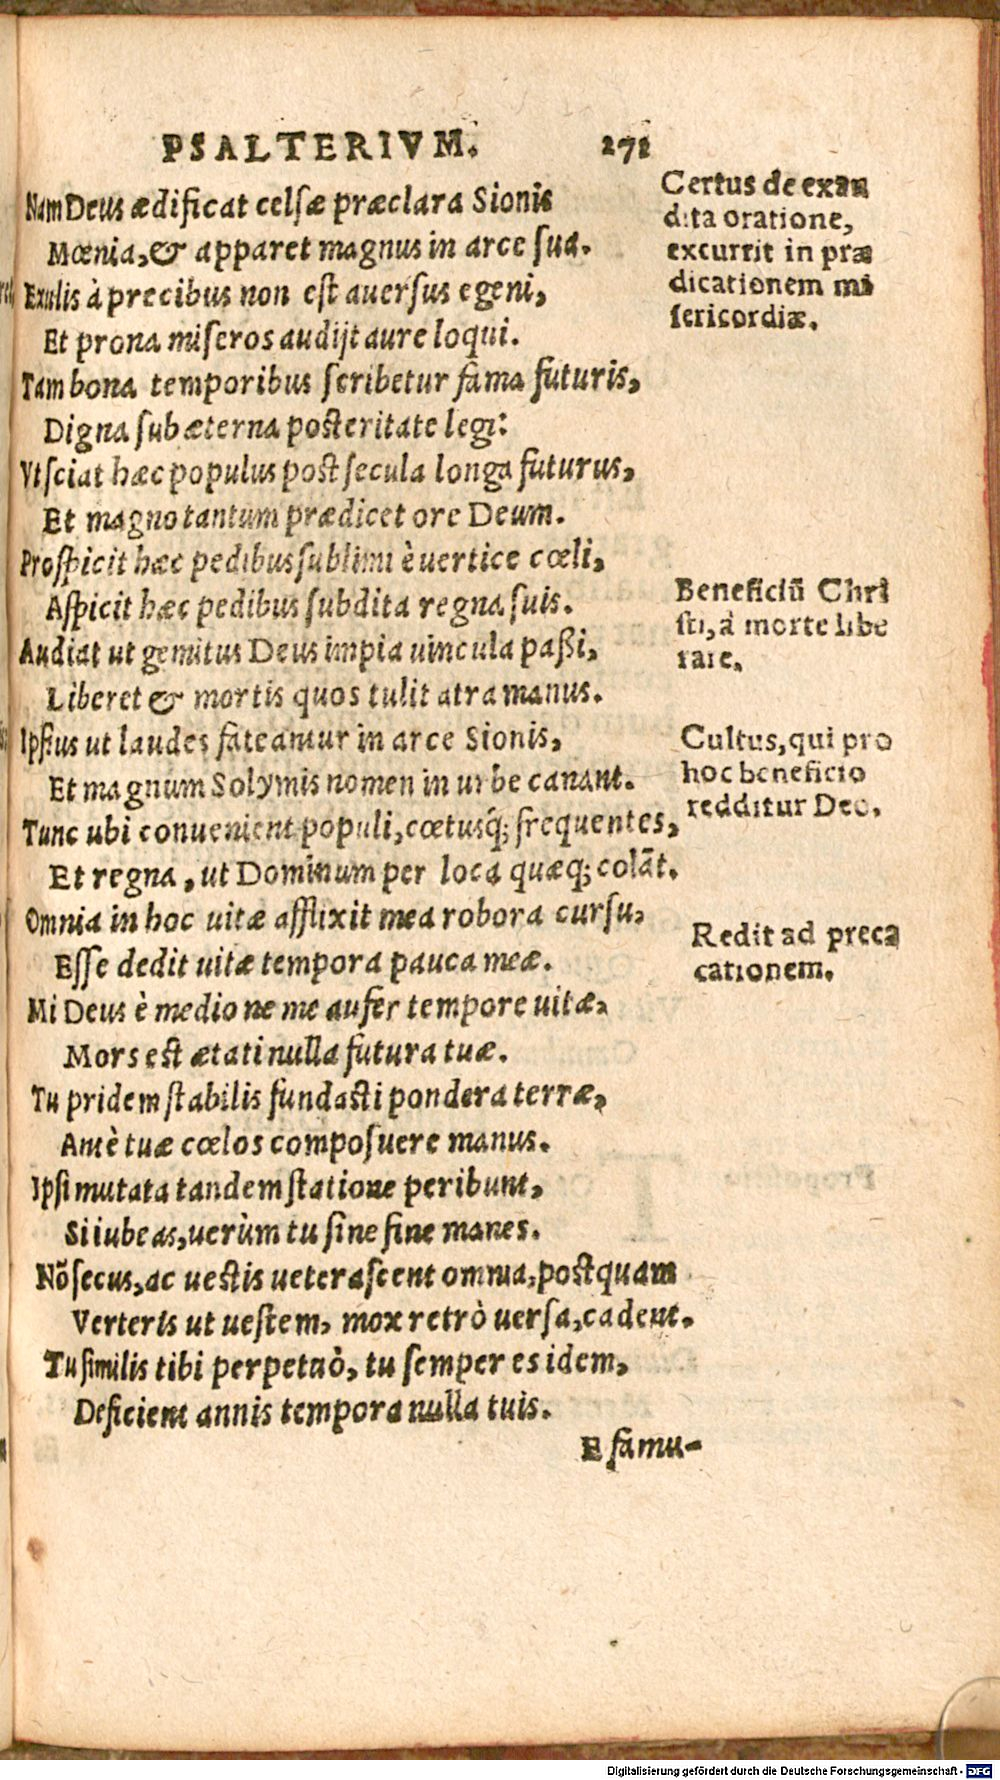 PSALTERIVM. 271
Nam Deus ædificat celsæ præclara Sionis
Mœnia, & apparet magnus in arce sua.
Exulis à precibus non est auersus egeni,
Et prona miseros audijt aure loqui.
Tam bona temporibus scribetur fama futuris,
Digna sub æterna posteritate legi:
Vt sciat hæc populus post secula longa futurus,
Et magno tantum prædicet ore Deum.
Prospicit hæc pedibus sublimi è uertice cœli,
Aspicit hæc pedibus subdita regna suis.
Audiat ut gemitus Deus impia uincula passi,
Liberet & mortis quos tulit atra manus.
Ipsius ut laudes fateamur in arce Sionis,
Et magnum Solymis nomen in urbe canant.
Tunc ubi conuenient populi, cœtusq́; frequentes,
Et regna, ut Dominum per loca quæq; colãt.
Omnia in hoc uitæ afflixit mea robora cursu,
Esse dedit uitæ tempora pauca meæ.
Mi Deus è medio ne me aufer tempore uitæ,
Mors est ætati nulla futura tuæ.
Tu pridem stabilis fundasti pondera terræ,
Atq́; tuæ cœlos composuere manus.
Ipsi mutata tandem statione peribunt,
Si iubeas, uerùm tu sine fine manes.
Nõ secus, ac uestis ueterascent omnia, postquam
Verteris ut uestem, mox retrò uersa, cadent.
Tu similis tibi perpetuò, tu semper es idem,
Deficient annis tempora nulla tuis.
E famu-
Certus de exau
dita oratione,
excurrit in præ
dicationem mi
sericordiæ.
Beneficiũ Chri
sti, à morte libe
rare.
Cultus, qui pro
hoc beneficio
redditur Deo.
Redit ad preca
cationem.
Digitalisierung gefördert durch die Deutsche Forschungsgemeinschaft - DFG